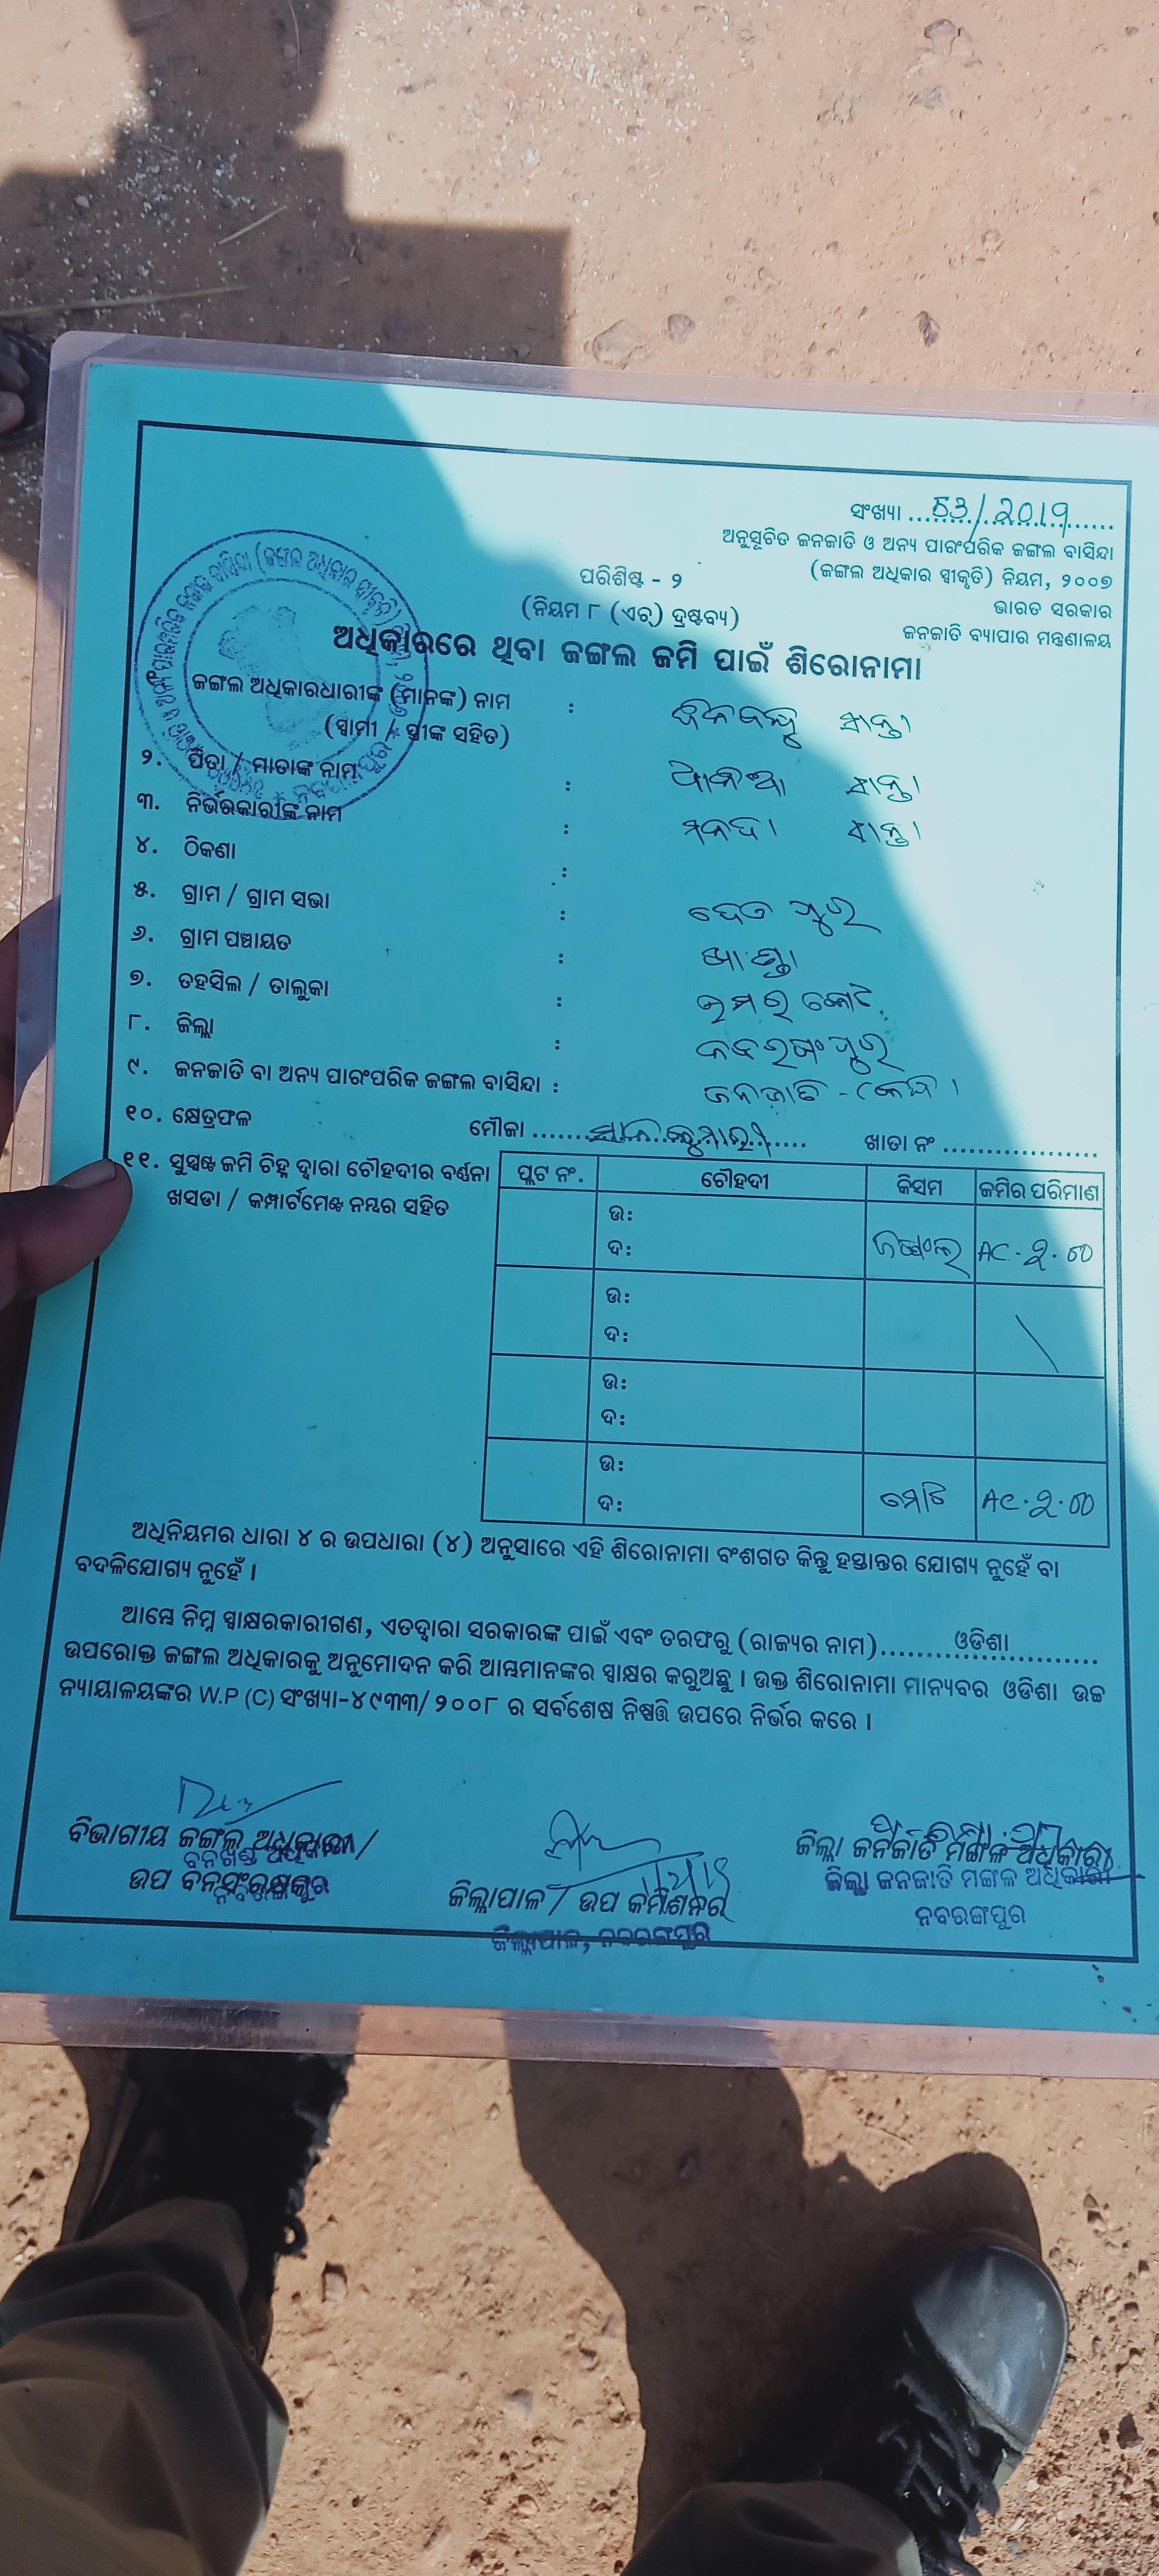 ସଂଖ୍ୟା 53/2019
ଅନୁସୂଚିତ ଜନଜାତି ଓ ଅନ୍ୟ ପାରଂପରିକ ଜଙ୍ଗଲ ବାସିନ୍ଦା
(ଜଙ୍ଗଲ ଅଧିକାର ସ୍ୱୀକୃତି) ନିୟମ, ୨୦୦୭
ଭାରତ ସରକାର
ଜନଜାତି ବ୍ୟାପାର ମନ୍ତ୍ରଣାଳୟ
ପରିଶିଷ୍ଟ - ୨
(ନିୟମ ୮ (ଏଚ୍) ଦ୍ରଷ୍ଟବ୍ୟ)
ଅଧିକାରରେ ଥିବା ଜଙ୍ଗଲ ଜମି ପାଇଁ ଶିରୋନାମା
ଜଙ୍ଗଲ ଅଧିକାରଧାରୀଙ୍କ (ମାନଙ୍କ) ନାମ :
(ସ୍ୱାମୀ / ସ୍ତ୍ରୀଙ୍କ ସହିତ)
୨. ପିତା / ମାତାଙ୍କ ନାମ :
୩. ନିର୍ଭରକାରୀଙ୍କ ନାମ :
୪. ଠିକଣା :
୫. ଗ୍ରାମ / ଗ୍ରାମ ସଭା :
୬. ଗ୍ରାମ ପଞ୍ଚାୟତ :
୭. ତହସିଲ / ତାଲୁକା : ଉମରକୋଟ
୮. ଜିଲ୍ଲା : ନବରଙ୍ଗପୁର
୯. ଜନଜାତି ବା ଅନ୍ୟ ପାରଂପରିକ ଜଙ୍ଗଲ ବାସିନ୍ଦା : ଜନଜାତି -
୧୦. କ୍ଷେତ୍ରଫଳ ମୌଜା ଖାତା ନଂ
୧୧. ସୁସ୍ପଷ୍ଟ ଜମି ଚିହ୍ନ ଦ୍ୱାରା ଚୌହଦୀର ବର୍ଣ୍ଣନା
ଖସଡା / କମ୍ପାର୍ଟମେଣ୍ଟ ନମ୍ବର ସହିତ
ପ୍ଲଟ ନଂ. ଚୌହଦୀ କିସମ ଜମିର ପରିମାଣ
ଉଃ
ଦଃ ଜଙ୍ଗଲ AC.2.00
ଉଃ
ଦଃ
ଉଃ
ଦଃ
ଉଃ
ଦଃ ମୋଟ AC.2.00
ଅଧିନିୟମର ଧାରା ୪ ର ଉପଧାରା (୪) ଅନୁସାରେ ଏହି ଶିରୋନାମା ବଂଶଗତ କିନ୍ତୁ ହସ୍ତାନ୍ତର ଯୋଗ୍ୟ ନୁହେଁ ବା
ବଦଳିଯୋଗ୍ୟ ନୁହେଁ ।
ଆମ୍ଭେ ନିମ୍ନ ସ୍ୱାକ୍ଷରକାରୀଗଣ, ଏତଦ୍ୱାରା ସରକାରଙ୍କ ପାଇଁ ଏବଂ ତରଫରୁ (ରାଜ୍ୟର ନାମ) ଓଡିଶା
ଉପରୋକ୍ତ ଜଙ୍ଗଲ ଅଧିକାରକୁ ଅନୁମୋଦନ କରି ଆମ୍ଭମାନଙ୍କର ସ୍ୱାକ୍ଷର କରୁଅଛୁ । ଉକ୍ତ ଶିରୋନାମା ମାନ୍ୟବର ଓଡିଶା ଉଚ୍ଚ
ନ୍ୟାୟାଳୟଙ୍କର W.P (C) ସଂଖ୍ୟା-୪୯୩୩/ ୨୦୦୮ ର ସର୍ବଶେଷ ନିଷ୍ପତ୍ତି ଉପରେ ନିର୍ଭର କରେ ।
ବିଭାଗୀୟ ଜଙ୍ଗଲ ଅଧିକାରୀ /
ଉପ ବନସଂରକ୍ଷକ
ଜିଲ୍ଲାପାଳ / ଉପ କମିଶନର୍
ଜିଲ୍ଲାପାଳ, ନବରଙ୍ଗପୁର
ଜିଲ୍ଲା ଜନଜାତି ମଙ୍ଗଳ ଅଧିକାରୀ
ଜିଲ୍ଲା ଜନଜାତି ମଙ୍ଗଳ ଅଧିକାରୀ
ନବରଙ୍ଗପୁର